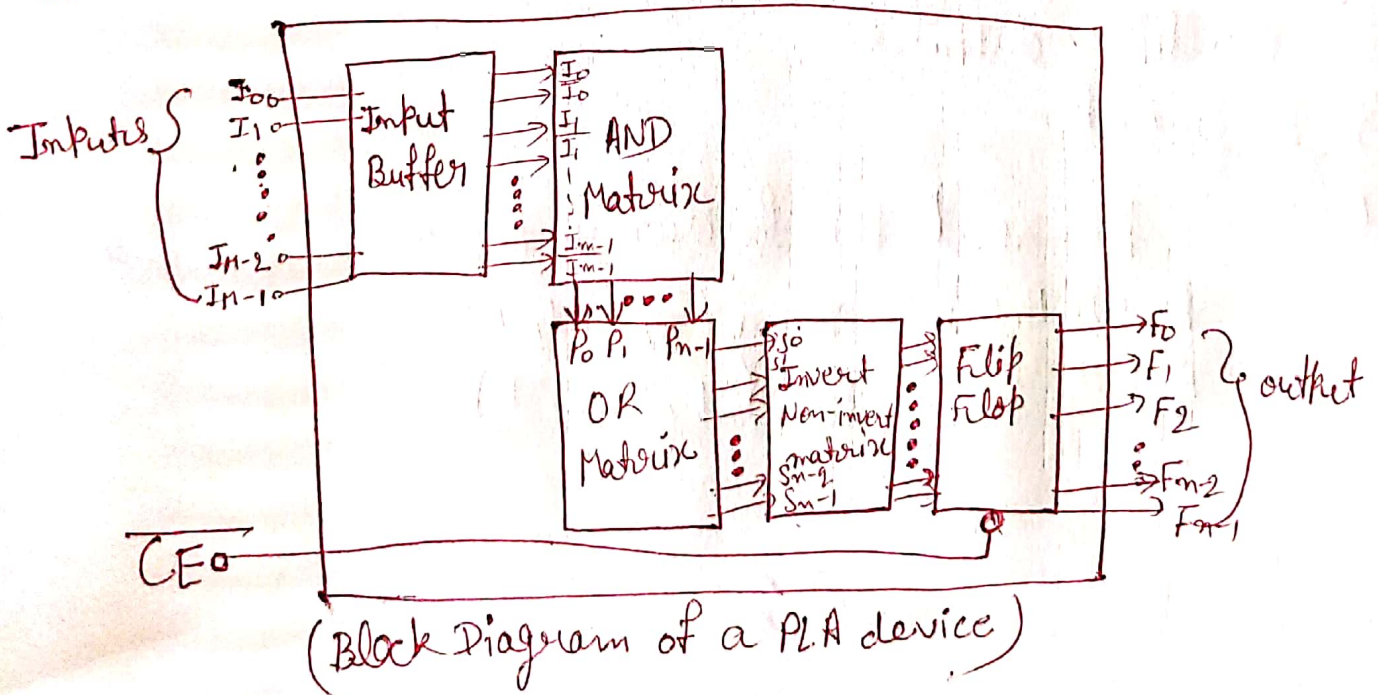 Inputs
I0
I1
In-2
In-1
Input
Buffer
I0
I0
I1
I1
Im-1
Im-1
AND
Matrix
P0 P1 Pn-1
OR
Matrix
S0
S1
Invert
Non-invert
matrix
Sn-2
Sn-1
Flip
Flop
F0
F1
F2
Fn-2
Fn-1
outket
CE
(Block Diagram of a PLA device)